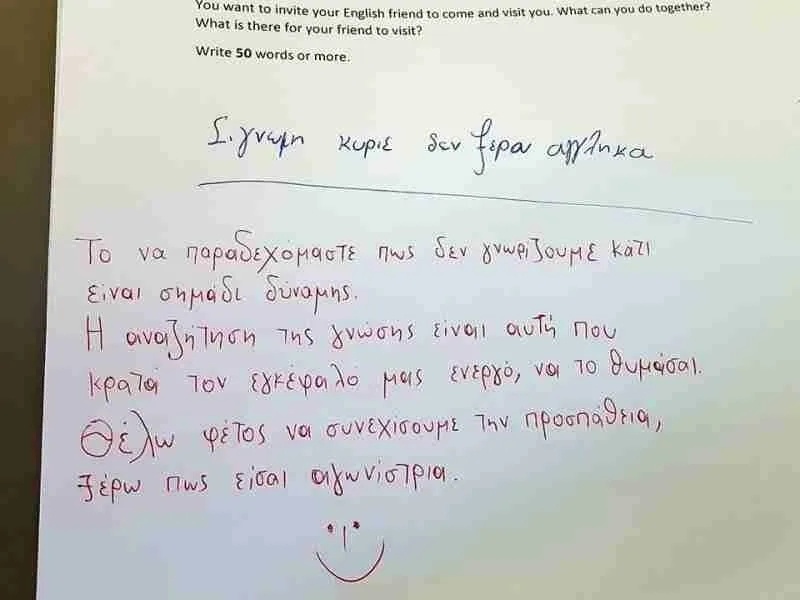 You want to invite your English friend to come and visit you. What can you do together?
What is there for your friend to visit?
Write 50 words or more.
Σιγνωμη κυριε δεν ξερω αγγληκα
Το να παραδεχόμαστε πως δεν γνωρίζουμε κάτι
είναι σημάδι δύναμης.
Η αναζήτηση της γνώσης είναι αυτή που
κρατά τον εγκέφαλό μας ενεργό, να το θυμάσαι.
Θέλω φέτος να συνεχίσουμε την προσπάθεια,
ξέρω πως είσαι αγωνίστρια.